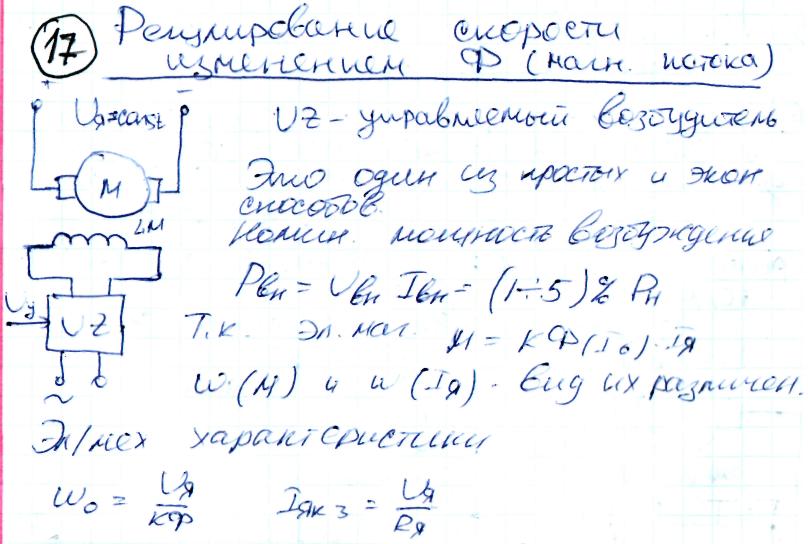 17 Регулирование скорости
изменением Ф (магн. потока)
+ Uя=const −
UZ - управляемый возбудитель.
М
Это один из простых и экон
способов.
LM
Номин. мощность возбуждения
Pвн = Uвн Iвн = (1÷5)% Pн
Uу UZ
Т.к. эл.маг. М = кФ(Iв)·Iя
ω(М) и ω(Iя) - Вид их различен.
~
Эл/мех характеристики
ω₀ = Uя/кФ Iякз = Uя/Rя